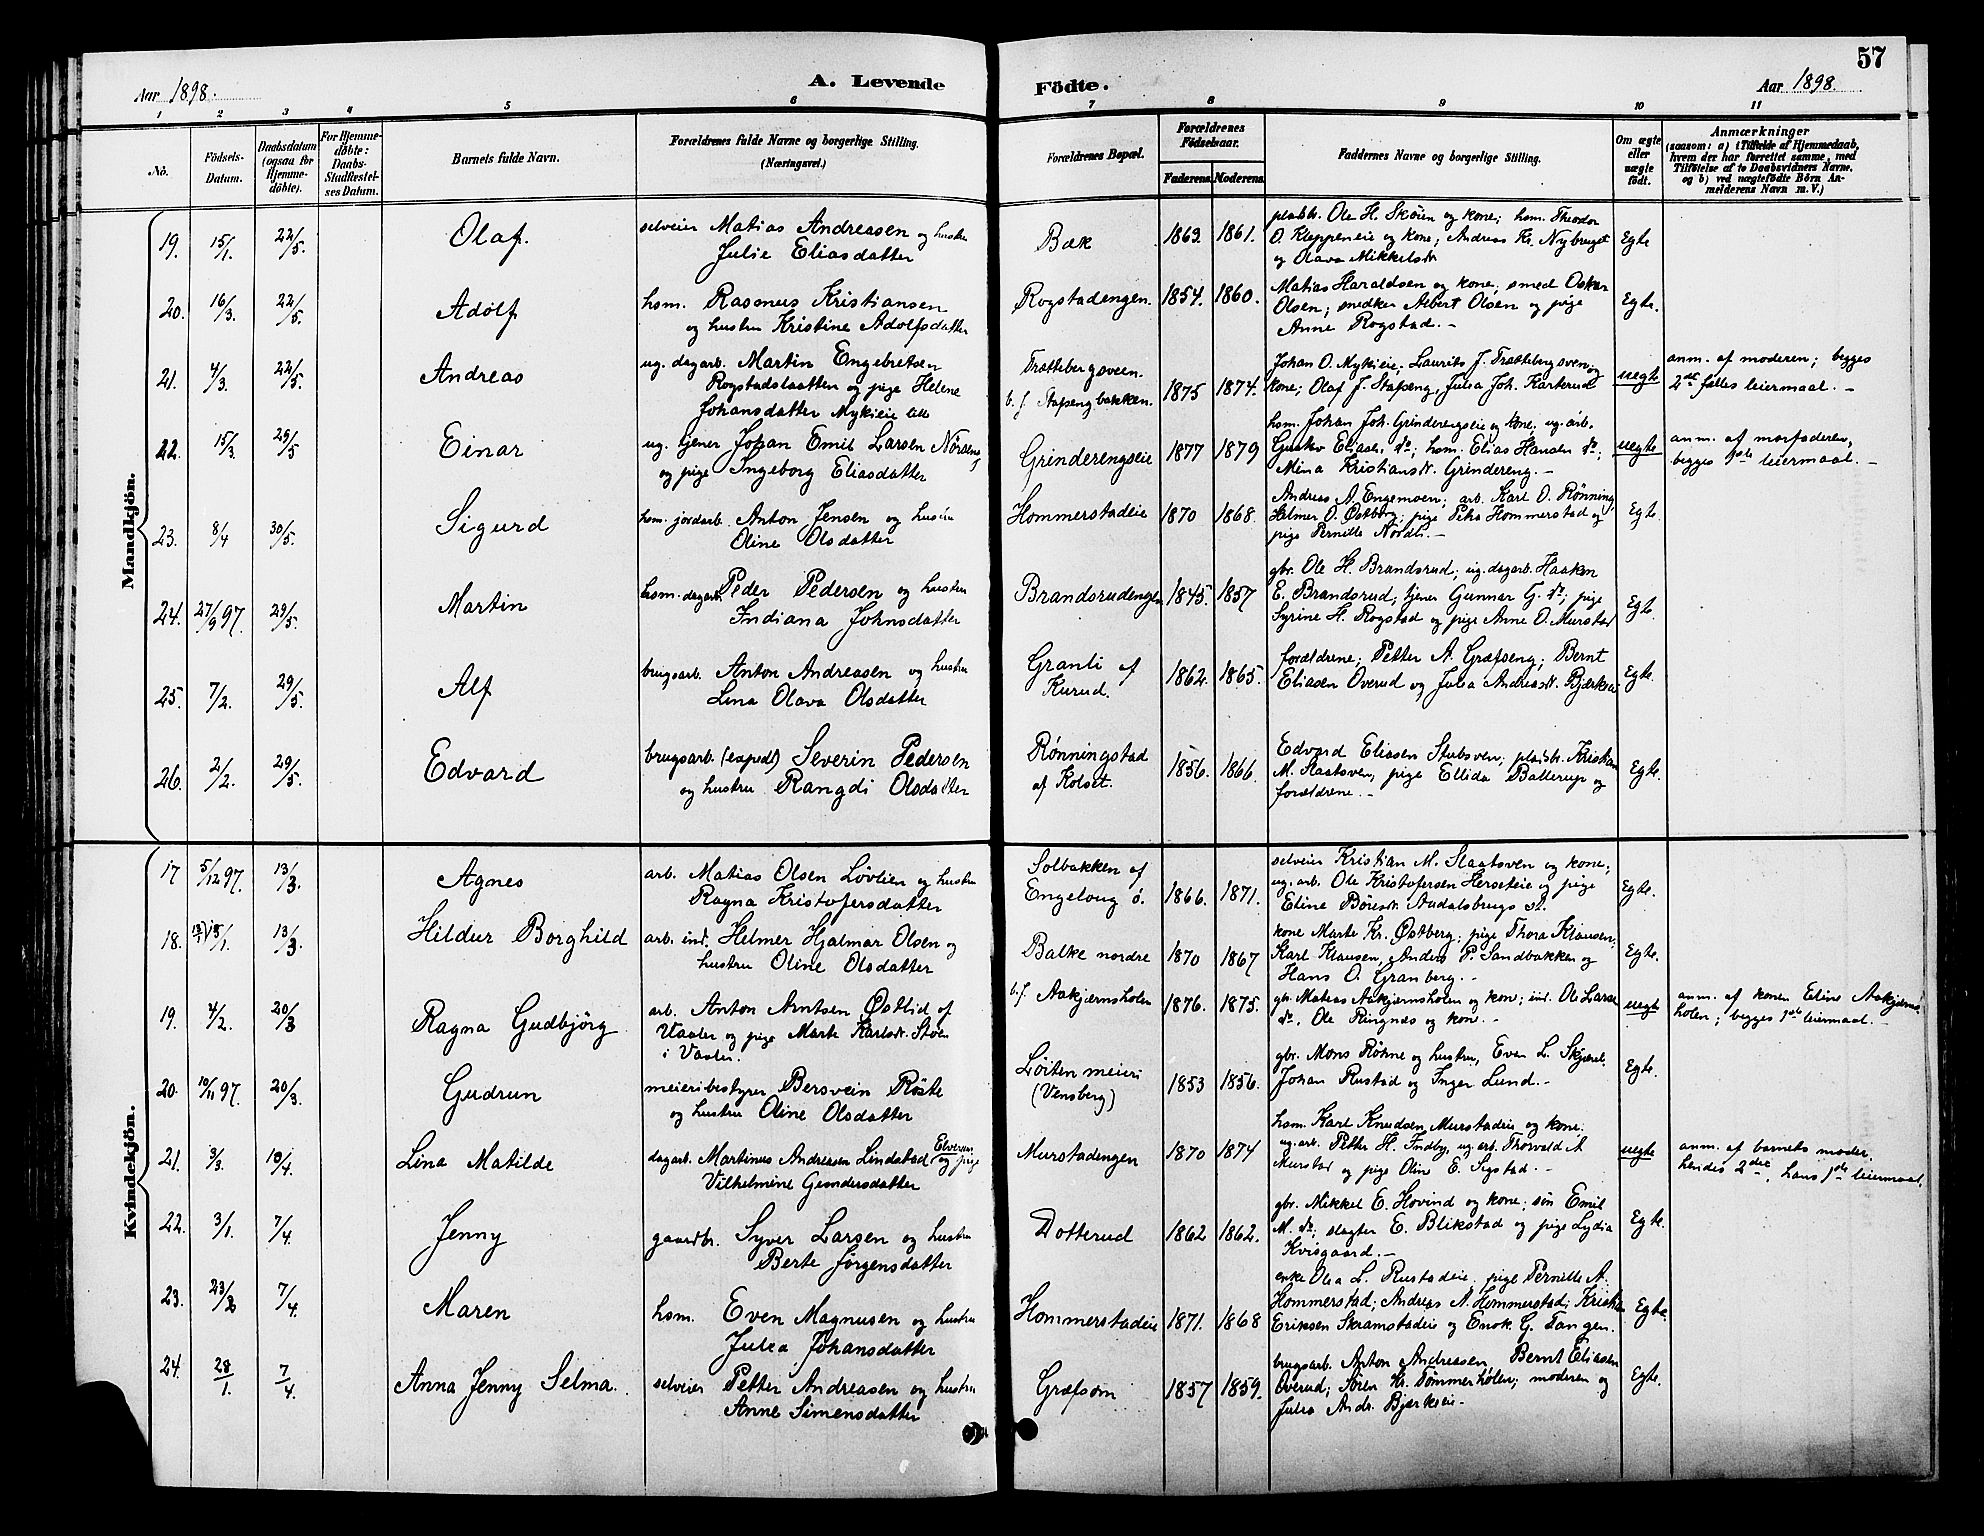 57
Aar 1898.
A. Levende
Födte.
Aar 1898.
1 2 3 4 5 6 7 8 9 10 11
No.
Födsels-Datum.
Daabsdatum (ogsaa for Hjemmedöbte).
For Hjemmedöbte: Daabs-Stadfæstelses Datum.
Barnets fulde Navn.
Forældrenes fulde Navne og borgerlige Stilling. (Næringsvei.)
Forældrenes Bopæl.
Forældrenes Födselsaar.
Faderens. Moderens.
Faddernes Navne og borgerlige Stilling.
Om ægte eller uægte födt.
Anmærkninger
(saasom: a) i Tilfælde af Hjemmedaab, hvem der har forrettet samme, med Tilföielse af to Daabsvidners Navne, og b) ved uægtefödte Börn Anmelderens Navn m. V.)
Mandkjön.
19. 15/1. 22/5. Olaf. selveier Matias Andreasen og hustru
Julie Eliasdatter
Bæk 1863. 1861.
plasbr. Ole H. Skøien og kone; hsm. Theodor
O. Kleppeneie og kone; Andreas Kr. Nybruget
og Olava Mikkelsdr.
Egte
20. 16/3. 22/5. Adolf. hsm. Rasmus Kristiansen
og hustru Kristine Adolfsdatter
Rogstadengen. 1854. 1860.
Matias Haraldsen og kone; smed Oskar
Olsen; snedker Albert Olsen og pige
Anne Rogstad. —
Egte.
21. 4/3. 22/5. Andreas
ug. dagarb. Martin Engebretsen
Rogstadslaatten og pige Helene
Johansdatter Mykieie
Trættebergsveen.
b. f. Stapengbakken. 1875 1874.
Johan O. Mykieie; Laurits J. Trættebergsveen og
kone; Olaf J. Stapeng, Julia Joh. Karterud
uegte
anm. af moderen; begges
2det fælles leiermaal. —
22. 15/3. 29/5 Einar
ug. tjener Johan Emil Larsen
og pige Ingeborg Eliasdatter
Grinderengseie 1877 1879
hsm. Johan Joh. Grinderengseie og kone, ug. arb.
Gustav Eliasen do; hsm. Elias Hansen do;
Mina Kristiansdr. Grindereng. —
uegte
anm. af morfaderen,
begges 1ste leiermaal. —
23. 8/4 30/5. Sigurd
hsm. jordarb. Anton Jensen og hustru
Oline Olsdatter
Hommerstadeie 1870 1868
Andreas A. Engemoen; arb. Karl O. Rønning,
Helmer O. Østberg; pige Petra Hommerstad og
pige Pernille Nordli. —
Egte.
24. 27/9 97. 29/5. Martin
hsm. dagarb. Peder Pedersen og hustru
Indiana Johnsdatter
Brandsrudengen 1845. 1857
gbr. Ole H. Brandsrud; ug. dagarb. Haaken
E. Brandsrud; tjener Gunnar G. do; pige
Syrine H. Rogstad og pige Anne O. Murstad
Egte
25. 7/2. 29/5. Alf
brugsarb. Anton Andreasen og hustru
Lina Olava Olsdatter
Granli af
Kurud. 1862. 1865.
forældrene; Petter A. Græfseng; Bernt
Eliasen Overud og Julia Andreasdr.
Egte.
26. 2/2. 29/5. Edvard
brugsarb. (exped.) Severin Pedersen
og hustru Rangdi Olsdatter
Rønningstad
af Kolset. 1856. 1866.
Edvard Eliasen Stubsven; plasbr. Kristian
M. Slaatsven, pige Ellida Ballerup og
forældrene. —
Egte.
Kvindekjön.
17 5/12 97. 13/3. Agnes
arb. Matias Olsen Løvlien og hustru
Ragna Kristofersdatter
Solbakken af
Engeloug ø. 1866. 1871.
selveier Kristian M. Slaatsven og kone;
ug. arb. Ole Kristofersen Herseteie og pige
Eline Aadalsbrugs st.
Egte.
18. 15/1. 13/3. Hildur Borghild
arb. ind. Helmer Hjalmar Olsen og
hustru Oline Olsdatter
Balke nordre 1870 1867
kone Marte Kr. Østberg; pige Thora Klausen,
Karl Klausen, Anders P. Sandbakken og
Hans O. Granberg. —
Egte.
19. 4/2. 20/3 Ragna Gudbjörg
arb. Anton Arntsen Østlid af
Vaaler og pige Marte Karlsdr. Stoen
i Vaaler.
b. f. Aakjærnsholen 1876. 1875.
gbr. Matias Aakjærnsholen og kone; ind. Ole Larsen
do, Ole Ringnæs og kone. —
uegte
anm. af konen Eline Aakjærns-
holen; begges 1ste leiermaal. —
20. 10/11 97. 20/3. Gudrun
meieribestyrer Bersvein Röste
og hustru Oline Olsdatter
Løiten meieri
(Vensberg) 1853 1856.
gbr. Mons Røhne og hustru, Even L. Skjæret,
Johan Rustad og Inger Lund. —
Egte.
21. 3/3. 10/4. Lina Matilde
dagarb. Martinus Andreasen Lindstad Elverum og pige
Vilhelmine Gundersdatter
Murstadengen 1870 1874
hsm. Karl Knudsen Murstadeie og kone.
ug. arb. Petter H. Indby, ug. arb. Thorvald A
Murstad og pige Oline E. Sigstad. —
uegte
anm. af barnets moder.
hendes 2det, hans 1ste leiermaal.
22. 3/1. 7/4. Jenny
gaardbr. Syver Larsen og hustru
Berte Jørgensdatter
Dotterud 1862 1862.
gbr. Mikkel E. Hovind og kone; søn Emil
M. do; slagter E. Blikstad og pige Lydia
Kvisgaard. —
Egte.
23. 23/2 7/4. Maren
hsm. Even Magnusen og hustru
Julia Johansdatter
Hommerstadeie 1871. 1868
enke Olia L. Rustadeie, pige Pernille A.
Hommerstad; Andreas A. Hommerstad; Kristian
Eriksen Skramstadeie og Enok G. Tangen.
Egte.
24. 28/1. 7/4. Anna Jenny Selma.
selveier Petter Andreasen og hustru
Anne Simensdatter
Græfsom 1857 1859.
brugsarb. Anton Andreasen, Bernt Eliasen
Overud; Søren Kr. Tømmerholen; moderen og
Julia Andr. Bjerkeie. —
Egte.